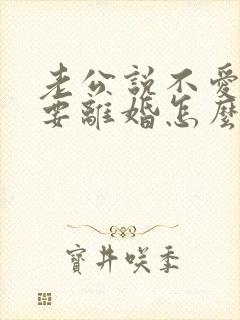 老公說不愛
要離婚怎麼
寶井咲季